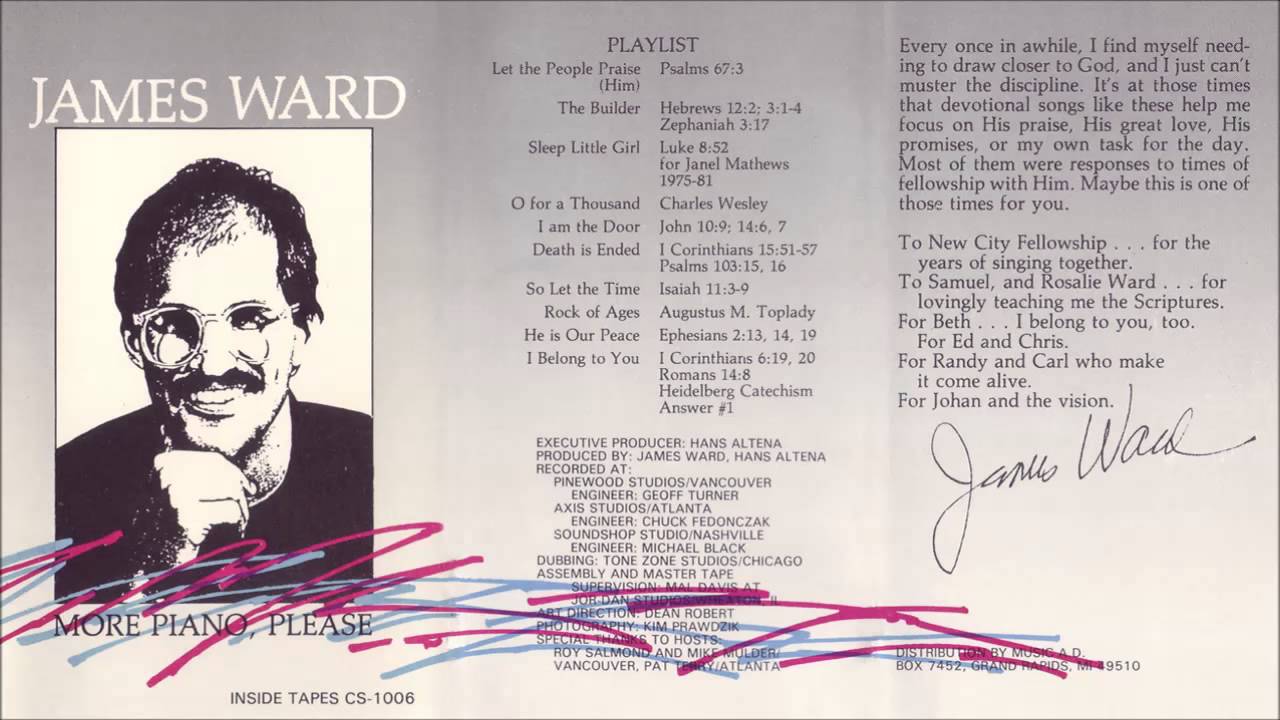 JAMES WARD
MORE PIANO, PLEASE
INSIDE TAPES CS-1006
PLAYLIST
Let the People Praise Psalms 67:3
(Him)
The Builder Hebrews 12:2; 3:1-4
Zephaniah 3:17
Sleep Little Girl Luke 8:52
for Janel Mathews
1975-81
O for a Thousand Charles Wesley
I am the Door John 10:9; 14:6, 7
Death is Ended I Corinthians 15:51-57
Psalms 103:15, 16
So Let the Time Isaiah 11:3-9
Rock of Ages Augustus M. Toplady
He is Our Peace Ephesians 2:13, 14, 19
I Belong to You I Corinthians 6:19, 20
Romans 14:8
Heidelberg Catechism
Answer #1
EXECUTIVE PRODUCER: HANS ALTENA
PRODUCED BY: JAMES WARD, HANS ALTENA
RECORDED AT:
PINEWOOD STUDIOS/VANCOUVER
ENGINEER: GEOFF TURNER
AXIS STUDIOS/ATLANTA
ENGINEER: CHUCK FEDONCZAK
SOUNDSHOP STUDIO/NASHVILLE
ENGINEER: MICHAEL BLACK
DUBBING: TONE ZONE STUDIOS/CHICAGO
ASSEMBLY AND MASTER TAPE
SUPERVISION: MAL DAVIS AT
JOR-DAN STUDIOS/WHEATON, IL
ART DIRECTION: DEAN ROBERT
PHOTOGRAPHY: KIM PRAWDZIK
SPECIAL THANKS TO HOSTS:
ROY SALMOND AND MIKE MULDER/
VANCOUVER, PAT TERRY/ATLANTA
Every once in awhile, I find myself need-
ing to draw closer to God, and I just can't
muster the discipline. It's at those times
that devotional songs like these help me
focus on His praise, His great love, His
promises, or my own task for the day.
Most of them were responses to times of
fellowship with Him. Maybe this is one of
those times for you.
To New City Fellowship . . . for the
years of singing together.
To Samuel, and Rosalie Ward . . . for
lovingly teaching me the Scriptures.
For Beth . . . I belong to you, too.
For Ed and Chris.
For Randy and Carl who make
it come alive.
For Johan and the vision.
James Ward
DISTRIBUTION BY MUSIC A.D.
BOX 7452, GRAND RAPIDS, MI 49510